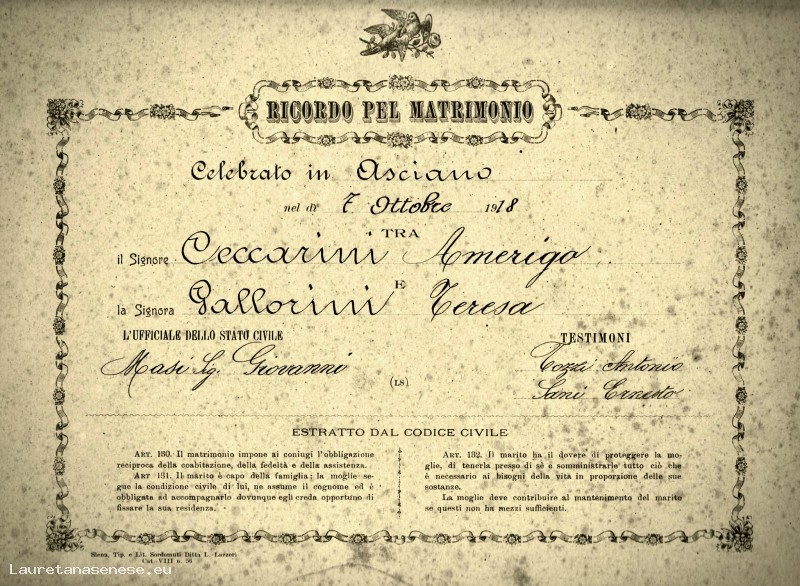 RICORDO PEL MATRIMONIO
Celebrato in Asciano
nel dì 7 Ottobre 1918
TRA
il Signore Ceccarini Amerigo
E
la Signora Gallorini Teresa
L'UFFICIALE DELLO STATO CIVILE
Masi Sg. Giovanni
(LS)
TESTIMONI
Tozzi Antonio
Sani Ernesto
ESTRATTO DAL CODICE CIVILE
ART. 130. Il matrimonio impone ai coniugi l'obbligazione
reciproca della coabitazione, della fedeltà e della assistenza.
ART. 131. Il marito è capo della famiglia: la moglie se-
gue la condizione civile di lui, ne assume il cognome ed è
obbligata ad accompagnarlo dovunque egli creda opportuno di
fissare la sua residenza.
ART. 132. Il marito ha il dovere di proteggere la mo-
glie, di tenerla presso di sè e somministrarle tutto ciò che
è necessario ai bisogni della vita in proporzione delle sue
sostanze.
La moglie deve contribuire al mantenimento del marito
se questi non ha mezzi sufficienti.
Siena, Tip. e Lit. Sordomuti Ditta L. Lazzeri
Cat. VIII n. 96
Lauretanasenese.eu